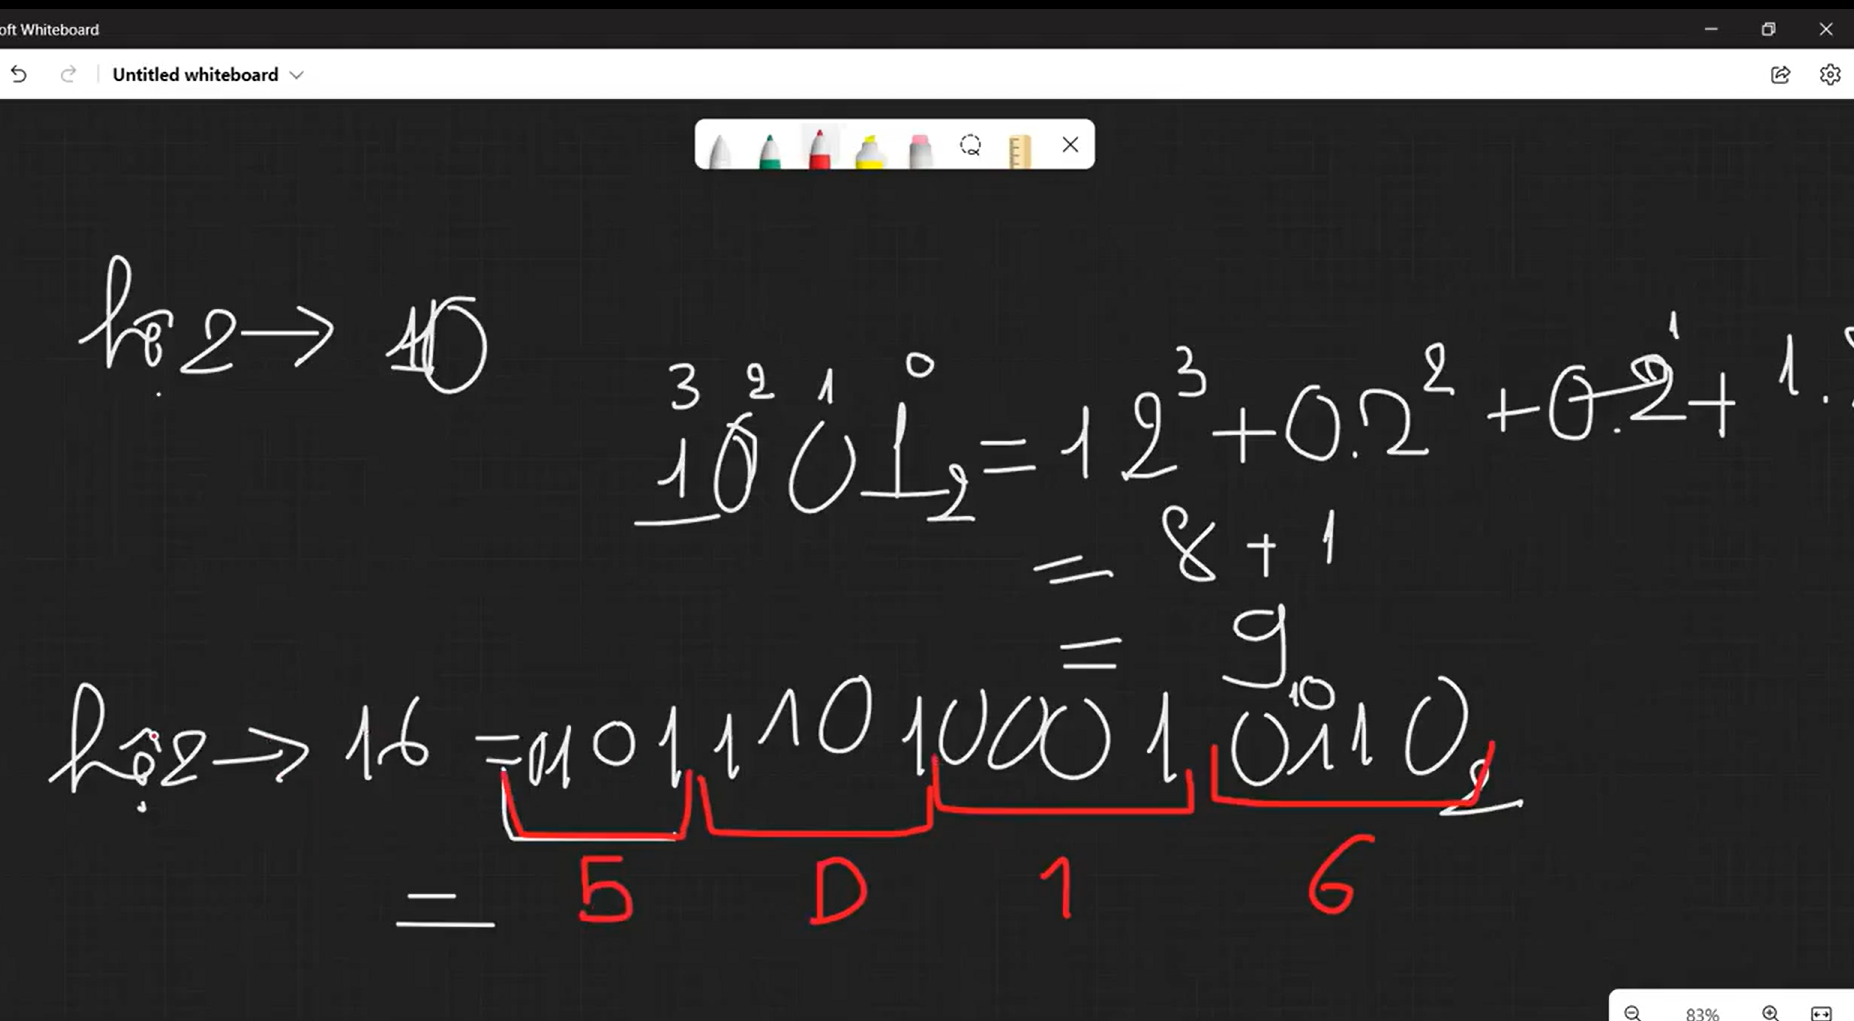 oft Whiteboard
Untitled whiteboard
hệ 2 → 10
3 2 1 0
1001₂ = 1 2³ + 0.2² + 0.2¹ + 1.
= 8 + 1
= 9₁₀
hệ 2 → 16 = 0101 1101 0001 0110₂
= 5 D 1 6
83%